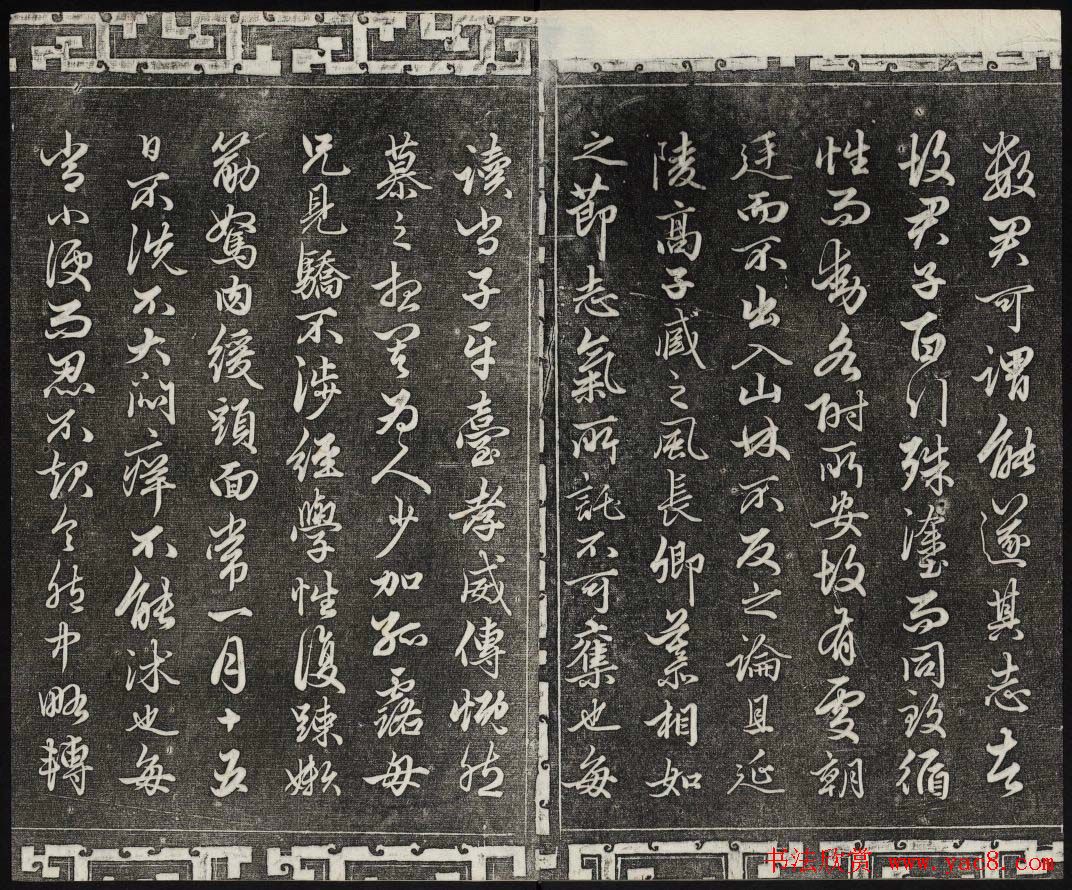 數君可謂能遂其志者
故君子百行殊塗而同致循
性而動各附所安故有處朝
廷而不出入山林不反之論且延
陵高子臧之風長卿慕相如
之節志氣所託不可奪也每
讀尚子平臺孝威傳慨然
慕之想其為人少加孤露母
兄見驕不涉經學性復疎嬾
筋駑肉緩頭面常一月十五
日不洗不大悶痒不能沐也每
常小便而忍不起令胞中略轉
书法欣赏 www.yac8.com